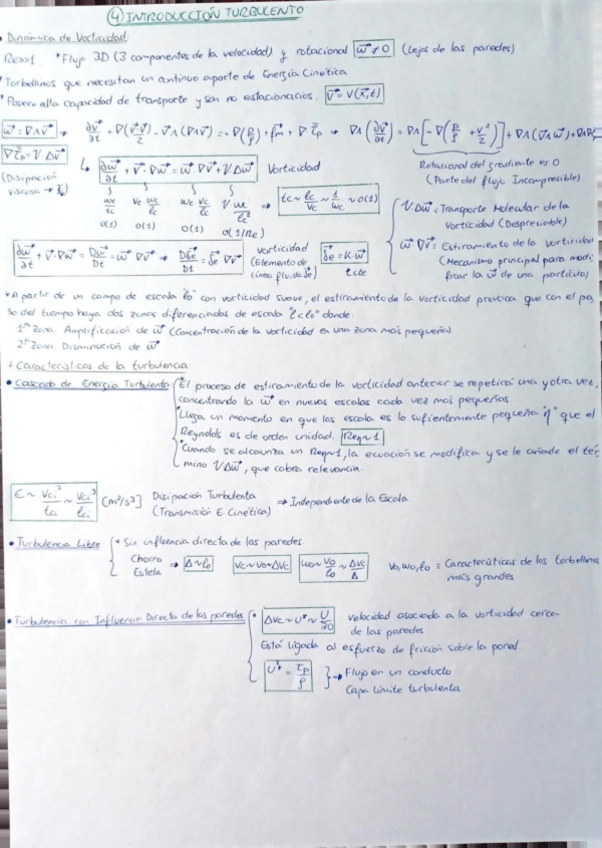 ④ INTRODUCCIÓN TURBULENTO
• Dinámica de Vorticidad
Re>>1 * Flujo 3D (3 componentes de la velocidad) y rotacional ω⃗ ≠ 0 (Lejos de las paredes)
* Torbellinos que necesitan un continuo aporte de Energía Cinética
* Poseen alta capacidad de transporte y son no estacionarios. V⃗ = V(x⃗,t)
ω⃗ = ∇∧v⃗ ⇒ ∂v⃗/∂t + ∇(v⃗·v⃗/2) - v⃗∧(∇∧v⃗) = -∇(p/ρ) + f⃗m + ∇ τ̿p ⇒ ∇∧(∂v⃗/∂t) = ∇∧[-∇(p/ρ + v²/2)] + ∇∧(v⃗∧ω⃗) +
∇τ̿p = ν Δv⃗
(Disipación viscosa → )
∂ω⃗/∂t + v⃗·∇ω⃗ = ω⃗ ∇v⃗ + ν Δω⃗ Vorticidad
Rotacional del gradiente es 0
(Parte del flujo Incompresible).
ωc/tc Vc ωc/lc ωc Vc/lc ν ωc/lc² ⇒ tc ~ lc/Vc ~ 1/ωc ~ o(1)
o(1) o(1) o(1) o(1/Re)
ν Δω⃗ = Transporte Molecular de la
Vorticidad (Despreciable)
ω⃗ ∇v⃗ = Estiramiento de la vorticidad
(Mecanismo principal para modi
ficar la ω⃗ de una partícula)
∂ω⃗/∂t + v⃗·∇ω⃗ = Dω⃗/Dt = ω⃗ ∇v⃗ ⇒ Dδe⃗/Dt = δe⃗ ∇v⃗ Vorticidad (Elemento de Línea fluida δe⃗) δe⃗ = K·ω⃗
* A partir de un campo de escala "lo" con vorticidad suave, el estiramiento de la vorticidad provoca que con el pa
so del tiempo haya dos zonas diferenciadas de escala "l<lo" donde:
1ª Zona Amplificación de ω⃗ (Concentración de la vorticidad en una zona más pequeña)
2ª Zona Disminución de ω⃗
+ Características de la turbulencia
• Cascada de Energía Turbulenta * El proceso de estiramiento de la vorticidad anterior se repetirá una y otra vez,
concentrando la ω⃗ en nuevas escalas cada vez más pequeñas
* Llega un momento en que las escala es lo suficientemente pequeña "η" que el
Reynolds es de orden unidad. Reη~1
* Cuando se alcanza un Reη~1, la ecuación se modifica y se le añade el tér
mino ν Δω⃗, que cobra relevancia.
ε ~ Vci²/tci ~ Vci³/lci [m²/s³] Disipación Turbulenta (Transmisión E Cinética) ⇒ Independiente de la Escala
• Turbulencia Libre * Sin influencia directa de las paredes.
Chorro
Estela ⇒ Δ~lo Vc~Vo~ΔVc ωo ~ Vo/lo ~ ΔVc/Δ Vo, ωo, lo = Características de los torbellinos
más grandes
• Turbulencia con Influencia Directa de las paredes * ΔVc ~ U* ~ U/30 velocidad asociada a la vorticidad cerca
de las paredes
Está ligada al esfuerzo de fricción sobre la pared.
U*² = τp/ρ ⇒ Flujo en un conducto
Capa límite turbulenta